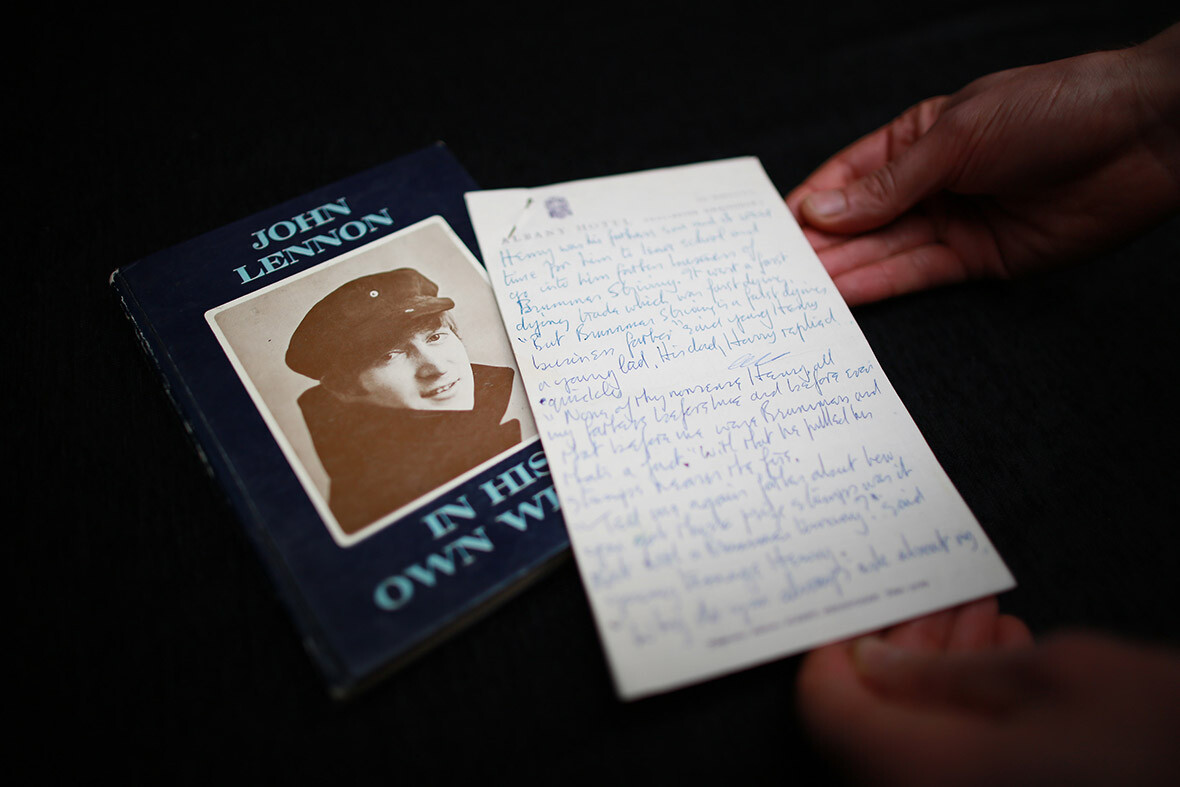 JOHN
LENNON
IN HIS
OWN WRI
ALBANY HOTEL
Henry was his fathers son and it were
time for him to leave school and
go into him father business of
Brummer Striving. It wert a fast
dying trade which was fast dying.
"But Brummer Striving is a fast dying
business father" said young Henry
a young lad. His dad, Harry replied
quickly
"None of thy nonsense Henry, all
my fathers before me and before even
that before me were Brummers and
thats a fact" with that he pulled his
stumps nearer the fire.
Tell me again father about how
you got those stumps was it
Brummer Striving?" said
young Henry.
why do you always ask about my